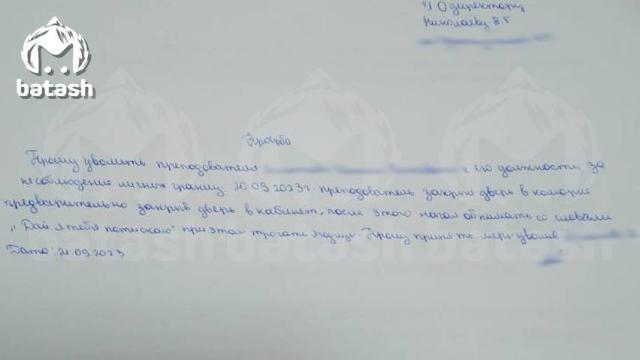 И О директора
Николаеву В.Г
batash
Просьба
Прошу уволить преподавателя с его должности за
несоблюдение личных границ 20.09.2023г. преподаватель закрыл дверь в коморке
предварительно закрыв дверь в кабинет, после этого начал обнимать со словами
"Дай я тебя потискаю" при этом трогать ягодицы. Прошу принять меры уволив
Дата: 21.09.2023